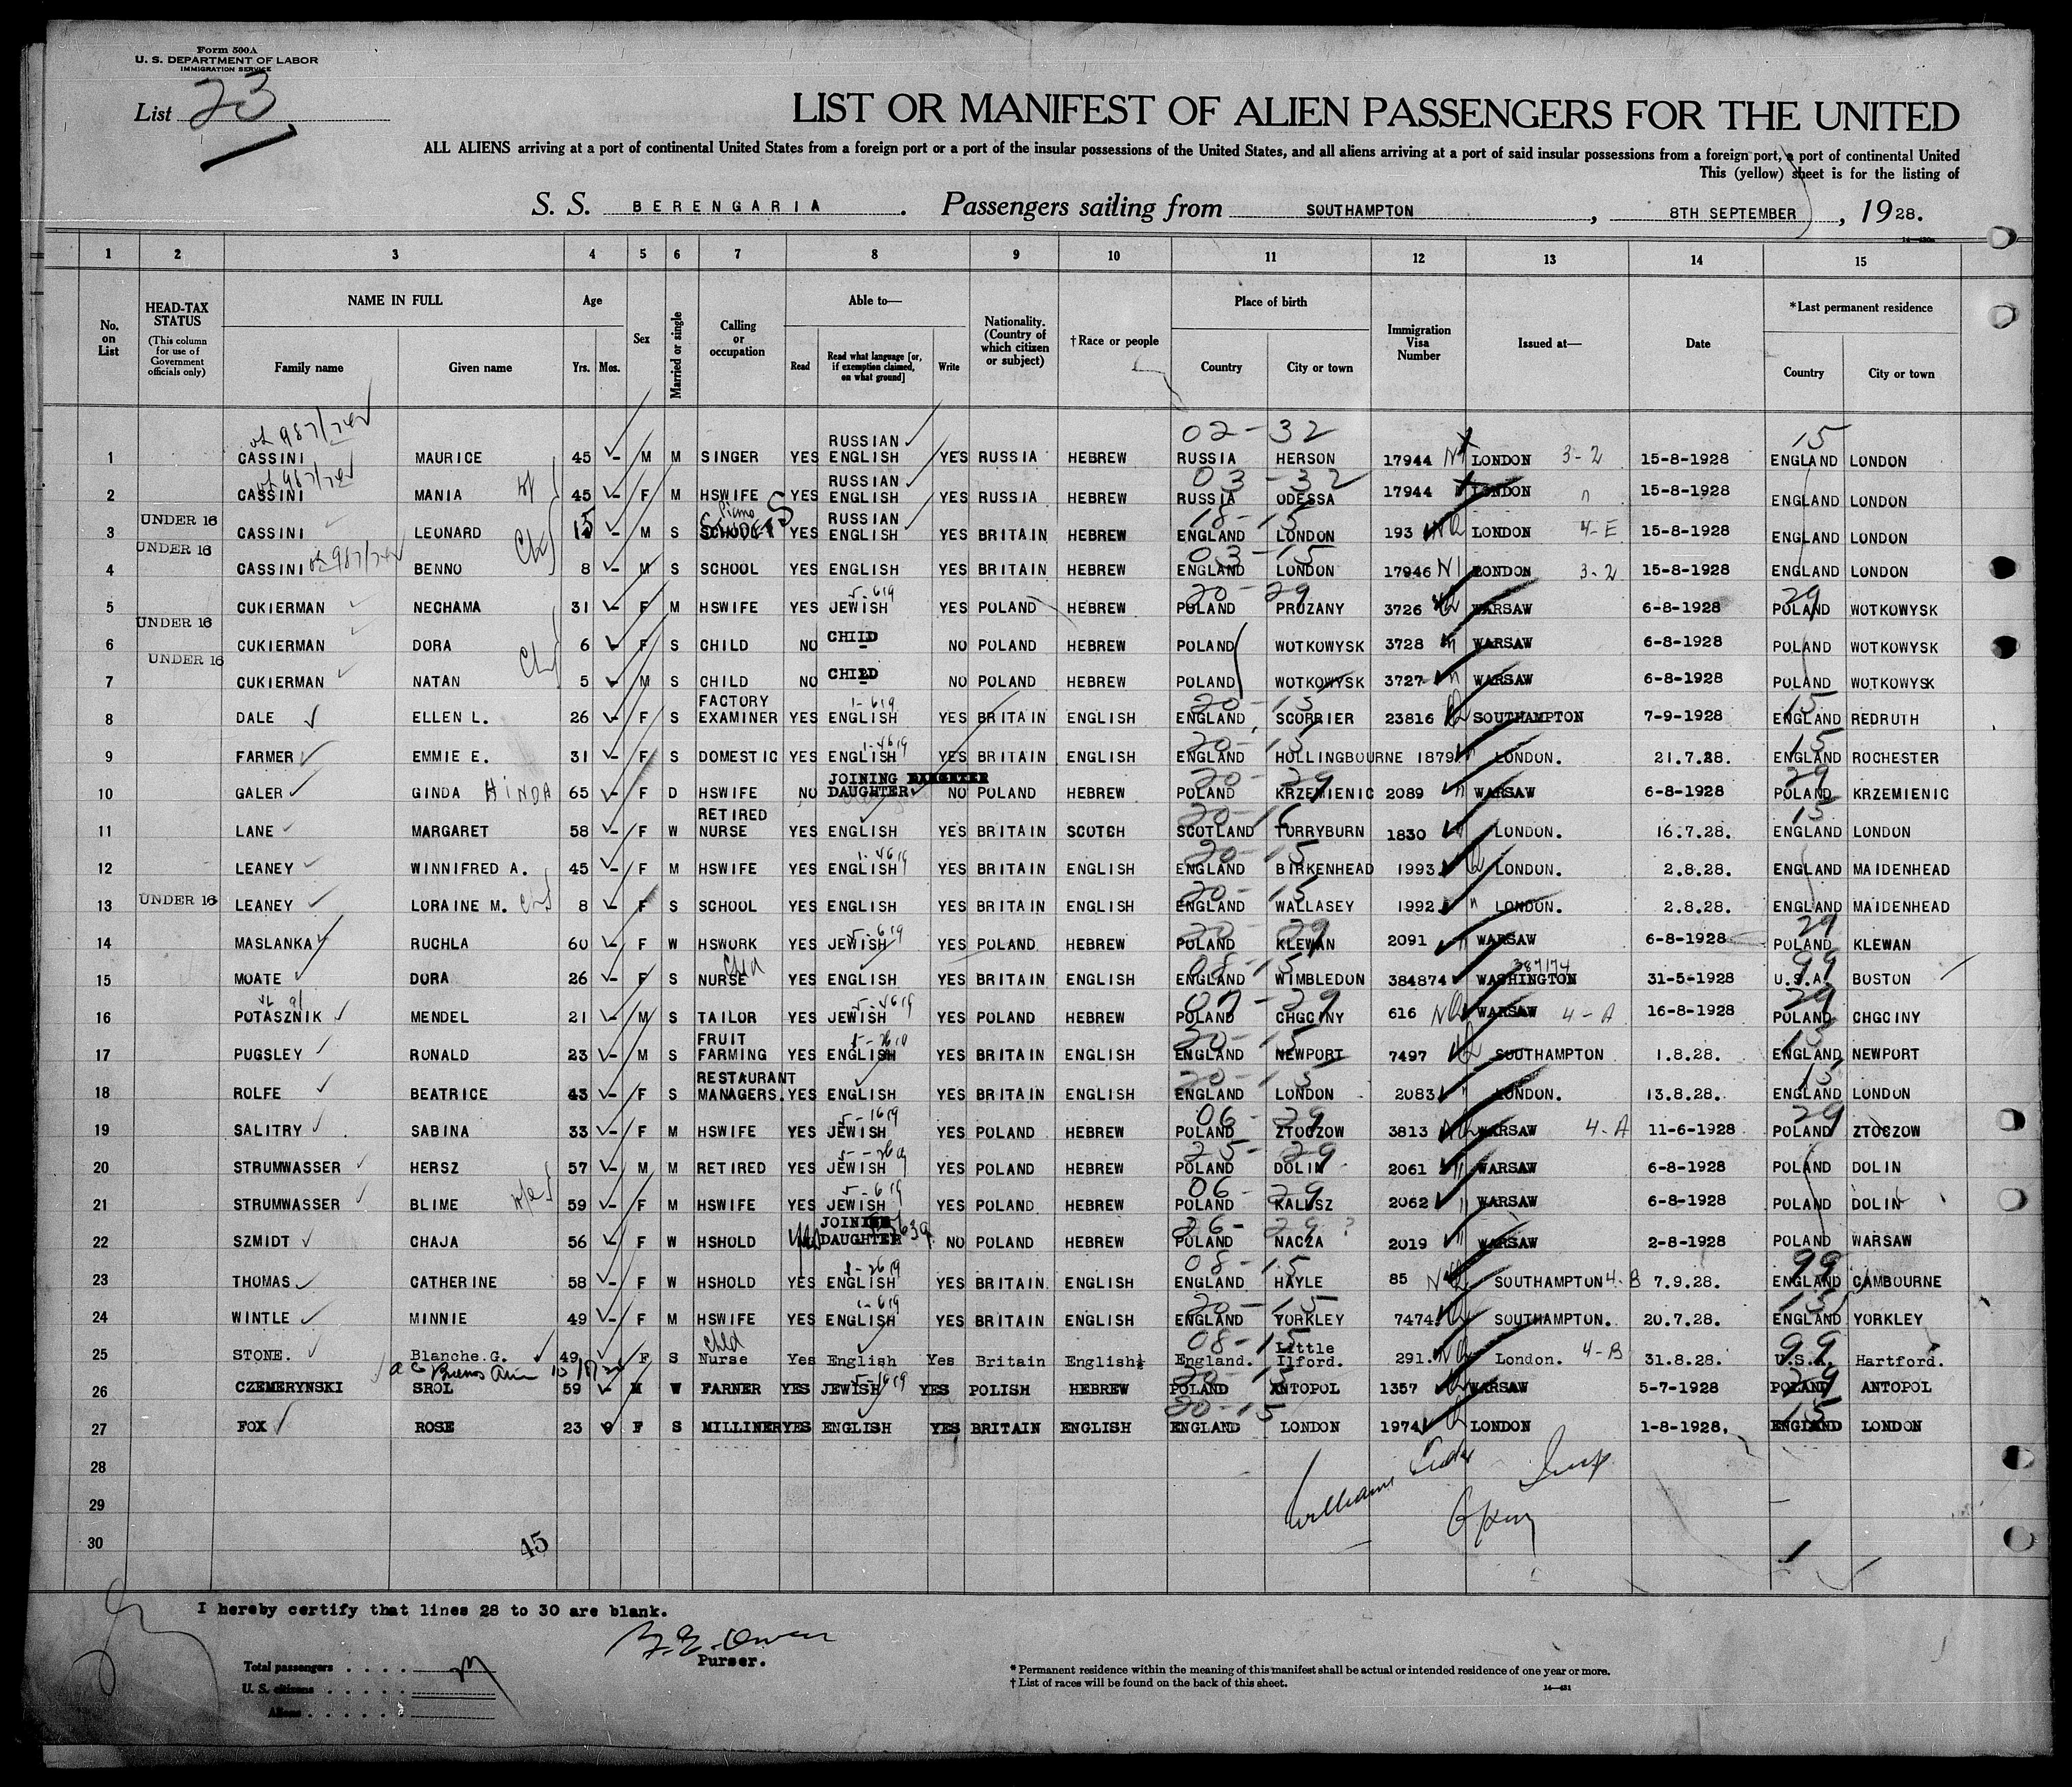 Form 500A
U. S. DEPARTMENT OF LABOR
IMMIGRATION SERVICE
List 23
LIST OR MANIFEST OF ALIEN PASSENGERS FOR THE UNITED
ALL ALIENS arriving at a port of continental United States from a foreign port or a port of the insular possessions of the United States, and all aliens arriving at a port of said insular possessions from a foreign port, a port of continental United
This (yellow) sheet is for the listing of
S. S. BERENGARIA. Passengers sailing from SOUTHAMPTON, 8TH SEPTEMBER, 1928.
1 2 3 4 5 6 7 8 9 10 11 12 13 14 15
No. on List HEAD-TAX STATUS (This column for use of Government officials only) NAME IN FULL Family name Given name Age Yrs. Mos. Sex Married or single Calling or occupation Able to— Read Read what language [or, if exemption claimed, on what ground] Write Nationality. (Country of which citizen or subject) †Race or people Place of birth Country City or town Immigration Visa Number Issued at— Date *Last permanent residence Country City or town
02-32 15
1 CASSINI MAURICE 45 M M SINGER YES RUSSIAN ENGLISH YES RUSSIA HEBREW RUSSIA HERSON 17944 LONDON 3-2 15-8-1928 ENGLAND LONDON
03-32
2 CASSINI MANIA 45 F M HSWIFE YES RUSSIAN ENGLISH YES RUSSIA HEBREW RUSSIA ODESSA 17944 LONDON 15-8-1928 ENGLAND LONDON
18-15
3 UNDER 16 CASSINI LEONARD 15 M S YES RUSSIAN ENGLISH YES BRITAIN HEBREW ENGLAND LONDON 193 NQ LONDON 4-E 15-8-1928 ENGLAND LONDON
03-15
4 UNDER 16 CASSINI BENNO 8 M S SCHOOL YES ENGLISH YES BRITAIN HEBREW ENGLAND LONDON 17946 LONDON 3-2 15-8-1928 ENGLAND LONDON
20-29 29
5 CUKIERMAN NECHAMA 31 F M HSWIFE YES JEWISH YES POLAND HEBREW POLAND PRUZANY 3726 WARSAW 6-8-1928 POLAND WOTKOWYSK
6 UNDER 16 CUKIERMAN DORA 6 F S CHILD NO CHILD NO POLAND HEBREW POLAND WOTKOWYSK 3728 WARSAW 6-8-1928 POLAND WOTKOWYSK
7 UNDER 16 CUKIERMAN NATAN 5 M S CHILD NO CHILD NO POLAND HEBREW POLAND WOTKOWYSK 3727 WARSAW 6-8-1928 POLAND WOTKOWYSK
20-15 15
8 DALE ELLEN L. 26 F S FACTORY EXAMINER YES ENGLISH YES BRITAIN ENGLISH ENGLAND SCORRIER 23816 SOUTHAMPTON 7-9-1928 ENGLAND REDRUTH
20-15 15
9 FARMER EMMIE E. 31 F S DOMESTIC YES ENGLISH YES BRITAIN ENGLISH ENGLAND HOLLINGBOURNE 1879 LONDON. 21.7.28. ENGLAND ROCHESTER
20-29 29
10 GALER GINDA HINDA 65 F D HSWIFE NO JOINING DAUGHTER NO POLAND HEBREW POLAND KRZEMIENIC 2089 WARSAW 6-8-1928 POLAND KRZEMIENIC
20-16 15
11 LANE MARGARET 58 F W RETIRED NURSE YES ENGLISH YES BRITAIN SCOTCH SCOTLAND TORRYBURN 1830 LONDON. 16.7.28. ENGLAND LONDON
20-15
12 LEANEY WINNIFRED A. 45 F M HSWIFE YES ENGLISH YES BRITAIN ENGLISH ENGLAND BIRKENHEAD 1993 LONDON. 2.8.28. ENGLAND MAIDENHEAD
20-15
13 UNDER 16 LEANEY LORAINE M. 8 F S SCHOOL YES ENGLISH YES BRITAIN ENGLISH ENGLAND WALLASEY 1992 LONDON. 2.8.28. ENGLAND MAIDENHEAD
20-29 29
14 MASLANKA RUCHLA 60 F W HSWORK YES JEWISH YES POLAND HEBREW POLAND KLEWAN 2091 WARSAW 6-8-1928 POLAND KLEWAN
08-15 99
15 MOATE DORA 26 F S NURSE YES ENGLISH YES BRITAIN ENGLISH ENGLAND WIMBLEDON 384874 WASHINGTON 31-5-1928 U.S.A. BOSTON
07-29 29
16 POTASZNIK MENDEL 21 M S TAILOR YES JEWISH YES POLAND HEBREW POLAND CHGCINY 616 NQ WARSAW 4-A 16-8-1928 POLAND CHGCINY
20-15 15
17 PUGSLEY RONALD 23 M S FRUIT FARMING YES ENGLISH YES BRITAIN ENGLISH ENGLAND NEWPORT 7497 SOUTHAMPTON 1.8.28. ENGLAND NEWPORT
20-15 15
18 ROLFE BEATRICE 43 F S RESTAURANT MANAGERS. YES ENGLISH YES BRITAIN ENGLISH ENGLAND LONDON 2083 LONDON. 13.8.28. ENGLAND LONDON
06-29 29
19 SALITRY SABINA 33 F M HSWIFE YES JEWISH YES POLAND HEBREW POLAND ZTOCZOW 3813 WARSAW 4-A 11-6-1928 POLAND ZTOCZOW
25-29
20 STRUMWASSER HERSZ 57 M M RETIRED YES JEWISH YES POLAND HEBREW POLAND DOLIN 2061 WARSAW 6-8-1928 POLAND DOLIN
06-29
21 STRUMWASSER BLIME 59 F M HSWIFE YES JEWISH YES POLAND HEBREW POLAND KALUSZ 2062 WARSAW 6-8-1928 POLAND DOLIN
26-29 ?
22 SZMIDT CHAJA 56 F W HSHOLD JOINING DAUGHTER NO POLAND HEBREW POLAND NACZA 2019 WARSAW 2-8-1928 POLAND WARSAW
08-15 99
23 THOMAS CATHERINE 58 F W HSHOLD YES ENGLISH YES BRITAIN. ENGLISH ENGLAND HAYLE 85 NQ SOUTHAMPTON 4-B 7.9.28. ENGLAND CAMBOURNE
20-15 15
24 WINTLE MINNIE 49 F M HSWIFE YES ENGLISH YES BRITAIN ENGLISH ENGLAND YORKLEY 7474 SOUTHAMPTON. 20.7.28. ENGLAND YORKLEY
08-15 99
25 STONE. Blanche.G. 49 F S Nurse Yes English Yes Britain English England. Little Ilford. 291. NQ London. 4-B 31.8.28. U.S.A. Hartford.
20-15 29
26 CZEMERYNSKI SROL 59 M W FARNER YES JEWISH YES POLISH HEBREW POLAND ANTOPOL 1357 WARSAW 5-7-1928 POLAND ANTOPOL
20-15 15
27 FOX ROSE 23 F S MILLINER YES ENGLISH YES BRITAIN ENGLISH ENGLAND LONDON 1974 LONDON 1-8-1928. ENGLAND LONDON
28
29
30
45
I hereby certify that lines 28 to 30 are blank.
Purser.
Total passengers
U. S. citizens
Aliens
* Permanent residence within the meaning of this manifest shall be actual or intended residence of one year or more.
† List of races will be found on the back of this sheet.
14—431